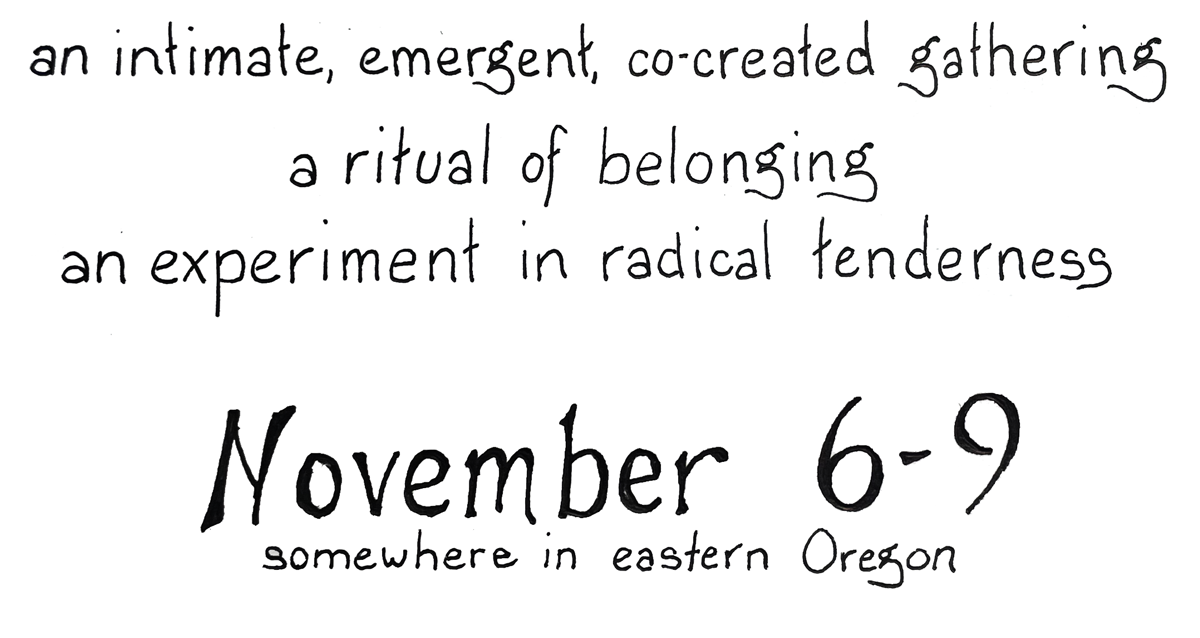 an intimate, emergent, co-created gathering
a ritual of belonging
an experiment in radical tenderness
November 6-9
somewhere in eastern Oregon